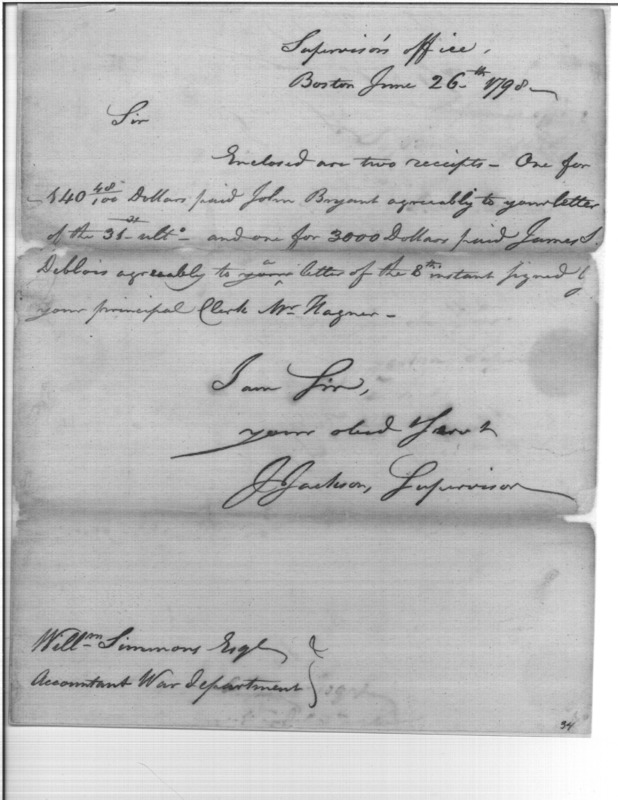 Supervisor's office,
Boston June 26th 1798
Sir
Enclosed are two receipts - One for
140 48/100 Dollars paid John Bryant agreeably to your letter
of the 31st ulto - and one for 3000 Dollars paid James S.
Deblois agreeably to your a letter of the 8th instant signed by
your principal Clerk Mr. Nagner -
I am Sir,
your obed Servt
J Jackson, Supervisor
Willm Simmons Esqr
Accountant War Department
34